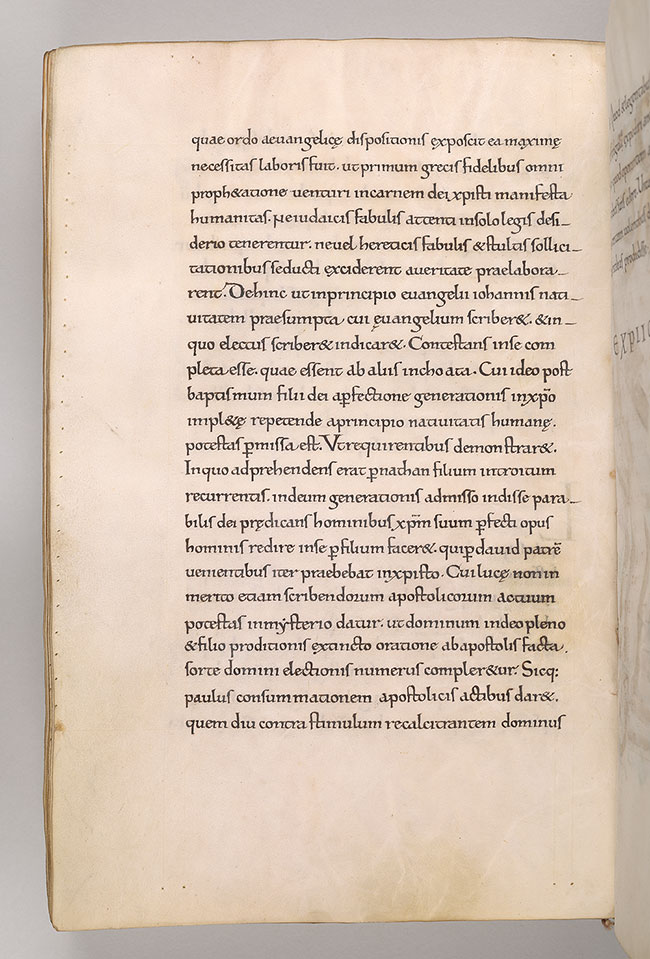 quae ordo aeuangelicę dispositionis ęxposcit ea maxime
necessitas laboris fuit. ut primum grecis fidelibus omni
proph&atione uenturi incarnem dei xpisti manifesta
humanitas. Ne iudaicis fabulis attenti insolo legis desi_
derio tenerentur. neuel hereticis fabulis & stultis sollici_
tationibus seducti exciderent aueritate praelabora_
rent. Dehinc utinprincipio euangelii iohannis nati_
uitatem praesumpta cui ęuangelium scriber&. & in_
quo electus scriber& indicar&. Contestans inse com
pleta esse. quae essent ab aliis inchoata. Cui ideo post
baptismum filii dei aꝑfectione generationis inxp̄o
impl&ę repetende aprincipio natiuitatis humanę.
potestas ꝑmissa est. Vt requirentibus demonstrar&.
In quo adprehendens erat ꝑnathan filium introitum
recurrentis. indeum generationis admisso indisse para_
bilis dei prędicans hominibus xp̄m suum ꝑfecti opus
hominis redire inse ꝑfilium facer&. quiꝑ dauid patrē
uenientibus iter praebebat inxpisto. Cui lucę non in
merito etiam scribendorum apostolicorum actuum
potestas inmysterio datur. ut dominum indeo pleno
& filio proditionis extincto oratione abapostolis facta.
sorte domini electionis numerus compler&ur. Sicq:
paulus consummationem apostolicis actibus dar&.
quem diu contra stimulum recalcitrantem dominus
EXPLIC